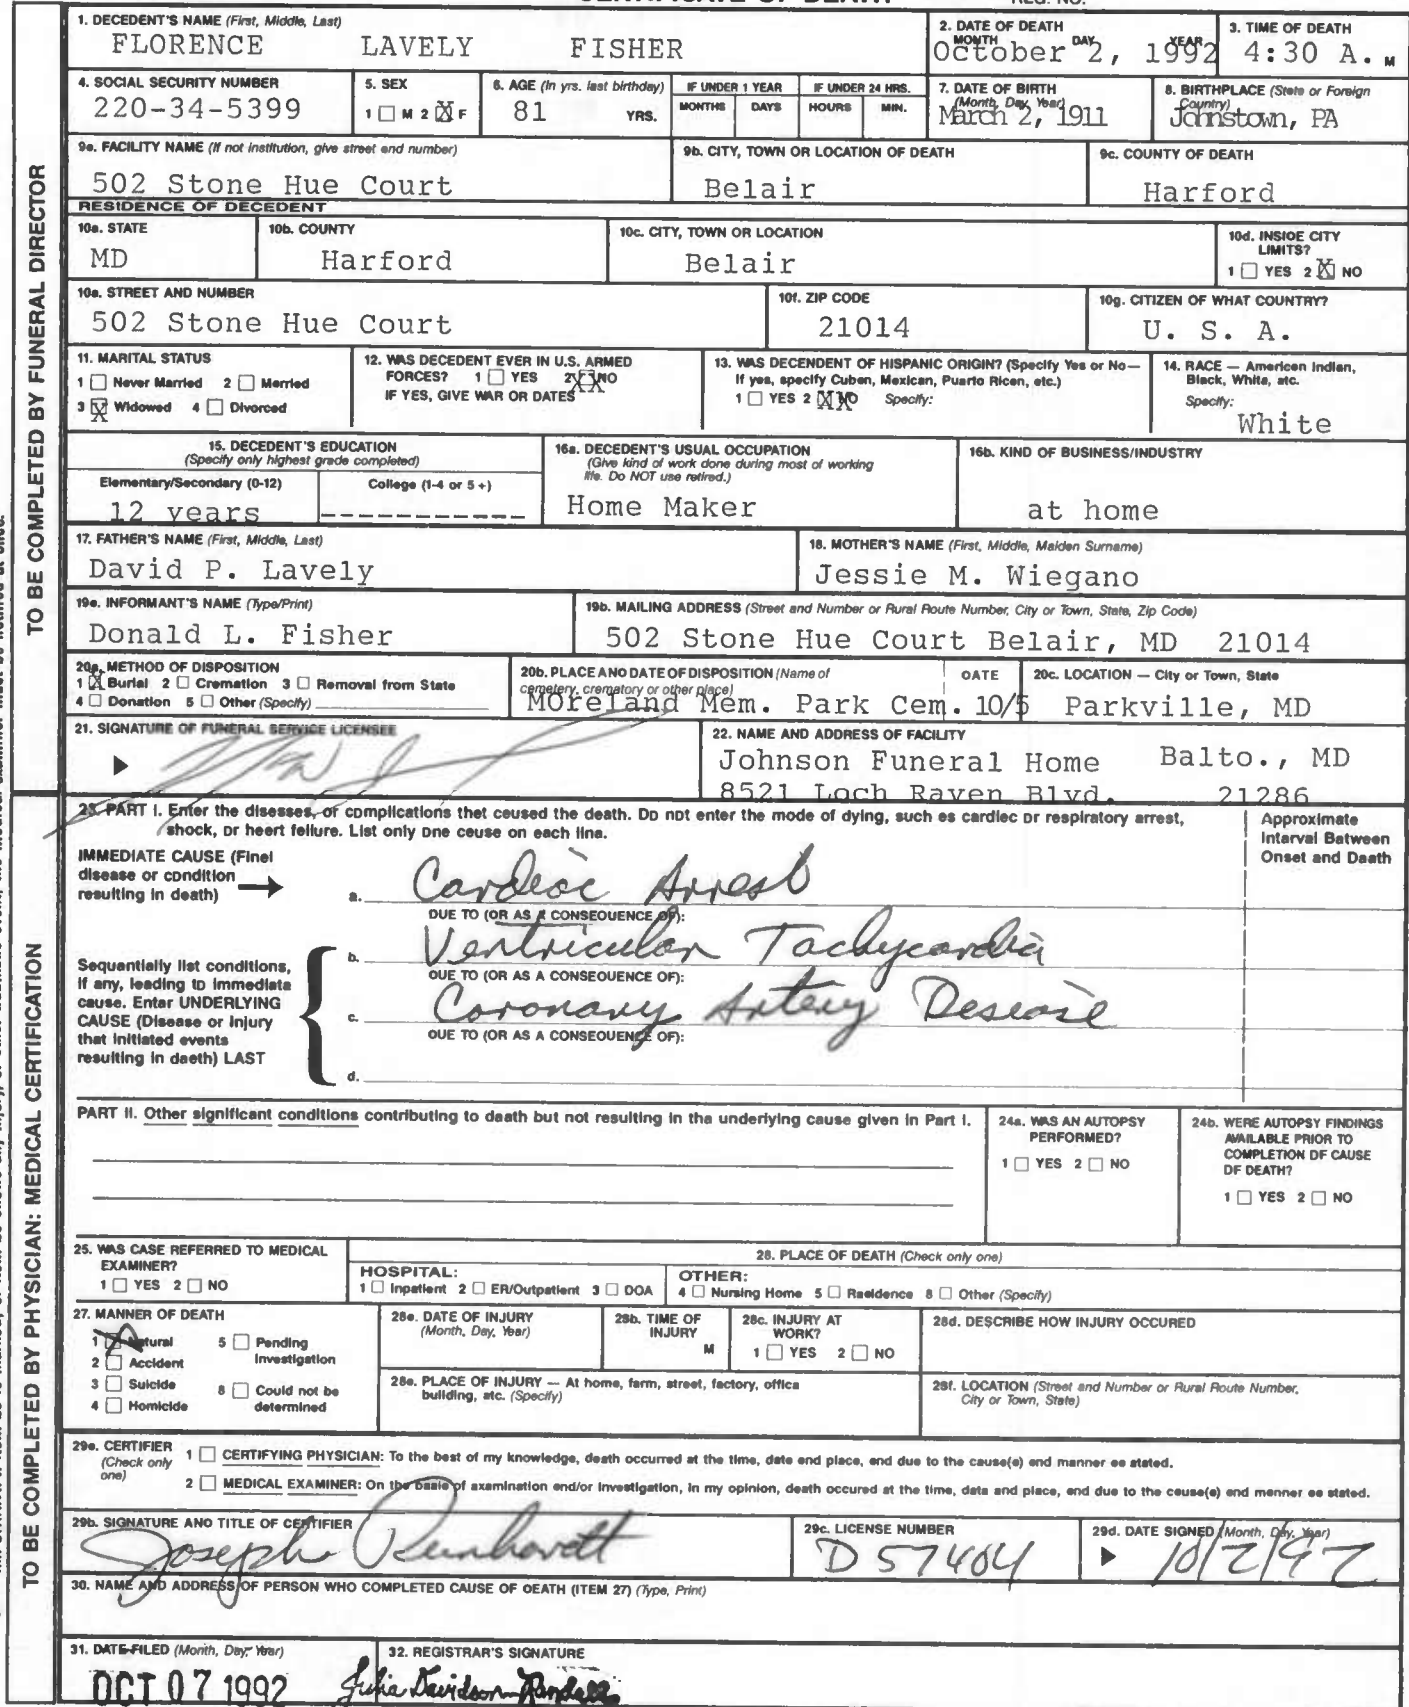 1. DECEDENT'S NAME (First, Middle, Last)
FLORENCE LAVELY FISHER
2. DATE OF DEATH
MONTH DAY YEAR
October 2, 1992
3. TIME OF DEATH
4:30 A. M
4. SOCIAL SECURITY NUMBER
220-34-5399
5. SEX
1 ☐ M 2 ☒ F
6. AGE (In yrs. last birthday)
81 YRS.
IF UNDER 1 YEAR
MONTHS DAYS
IF UNDER 24 HRS.
HOURS MIN.
7. DATE OF BIRTH
(Month, Day, Year)
March 2, 1911
8. BIRTHPLACE (State or Foreign
Country)
Johnstown, PA
9a. FACILITY NAME (If not institution, give street and number)
502 Stone Hue Court
9b. CITY, TOWN OR LOCATION OF DEATH
Belair
9c. COUNTY OF DEATH
Harford
RESIDENCE OF DECEDENT
10a. STATE
MD
10b. COUNTY
Harford
10c. CITY, TOWN OR LOCATION
Belair
10d. INSIDE CITY
LIMITS?
1 ☐ YES 2 ☒ NO
10e. STREET AND NUMBER
502 Stone Hue Court
10f. ZIP CODE
21014
10g. CITIZEN OF WHAT COUNTRY?
U. S. A.
11. MARITAL STATUS
1 ☐ Never Married 2 ☐ Married
3 ☒ Widowed 4 ☐ Divorced
12. WAS DECEDENT EVER IN U.S. ARMED
FORCES? 1 ☐ YES 2 ☒ NO
IF YES, GIVE WAR OR DATES
13. WAS DECENDENT OF HISPANIC ORIGIN? (Specify Yes or No—
If yes, specify Cuban, Mexican, Puerto Rican, etc.)
1 ☐ YES 2 ☒ NO Specify:
14. RACE — American Indian,
Black, White, etc.
Specify:
White
15. DECEDENT'S EDUCATION
(Specify only highest grade completed)
Elementary/Secondary (0-12) College (1-4 or 5+)
12 years -----------
16a. DECEDENT'S USUAL OCCUPATION
(Give kind of work done during most of working
life. Do NOT use retired.)
Home Maker
16b. KIND OF BUSINESS/INDUSTRY
at home
17. FATHER'S NAME (First, Middle, Last)
David P. Lavely
18. MOTHER'S NAME (First, Middle, Maiden Surname)
Jessie M. Wiegano
19a. INFORMANT'S NAME (Type/Print)
Donald L. Fisher
19b. MAILING ADDRESS (Street and Number or Rural Route Number, City or Town, State, Zip Code)
502 Stone Hue Court Belair, MD 21014
20a. METHOD OF DISPOSITION
1 ☒ Burial 2 ☐ Cremation 3 ☐ Removal from State
4 ☐ Donation 5 ☐ Other (Specify)
20b. PLACE AND DATE OF DISPOSITION (Name of
cemetery, crematory or other place)
DATE
Moreland Mem. Park Cem. 10/5
20c. LOCATION — City or Town, State
Parkville, MD
21. SIGNATURE OF FUNERAL SERVICE LICENSEE
22. NAME AND ADDRESS OF FACILITY
Johnson Funeral Home Balto., MD
8521 Loch Raven Blvd. 21286
TO BE COMPLETED BY FUNERAL DIRECTOR
23. PART I. Enter the diseases, or complications that caused the death. Do not enter the mode of dying, such as cardiac or respiratory arrest,
shock, or heart failure. List only one cause on each line.
Approximate
Interval Between
Onset and Death
IMMEDIATE CAUSE (Final
disease or condition
resulting in death)
a. Cardiac Arrest
DUE TO (OR AS A CONSEQUENCE OF):
b. Ventricular Tachycardia
DUE TO (OR AS A CONSEQUENCE OF):
c. Coronary Artery Desease
DUE TO (OR AS A CONSEQUENCE OF):
d.
Sequentially list conditions,
if any, leading to immediate
cause. Enter UNDERLYING
CAUSE (Disease or injury
that initiated events
resulting in death) LAST
PART II. Other significant conditions contributing to death but not resulting in the underlying cause given in Part I.
24a. WAS AN AUTOPSY
PERFORMED?
1 ☐ YES 2 ☐ NO
24b. WERE AUTOPSY FINDINGS
AVAILABLE PRIOR TO
COMPLETION OF CAUSE
OF DEATH?
1 ☐ YES 2 ☐ NO
25. WAS CASE REFERRED TO MEDICAL
EXAMINER?
1 ☐ YES 2 ☐ NO
26. PLACE OF DEATH (Check only one)
HOSPITAL:
1 ☐ Inpatient 2 ☐ ER/Outpatient 3 ☐ DOA
OTHER:
4 ☐ Nursing Home 5 ☐ Residence 6 ☐ Other (Specify)
27. MANNER OF DEATH
1 ☒ Natural 5 ☐ Pending
Investigation
2 ☐ Accident
3 ☐ Suicide 6 ☐ Could not be
determined
4 ☐ Homicide
28a. DATE OF INJURY
(Month, Day, Year)
28b. TIME OF
INJURY
M
28c. INJURY AT
WORK?
1 ☐ YES 2 ☐ NO
28d. DESCRIBE HOW INJURY OCCURED
28e. PLACE OF INJURY — At home, farm, street, factory, office
building, etc. (Specify)
28f. LOCATION (Street and Number or Rural Route Number,
City or Town, State)
29a. CERTIFIER
(Check only
one)
1 ☐ CERTIFYING PHYSICIAN: To the best of my knowledge, death occurred at the time, date and place, and due to the cause(s) and manner as stated.
2 ☐ MEDICAL EXAMINER: On the basis of examination and/or investigation, in my opinion, death occured at the time, data and place, and due to the cause(s) and manner as stated.
29b. SIGNATURE AND TITLE OF CERTIFIER
Joseph Reinhardt
29c. LICENSE NUMBER
D 57404
29d. DATE SIGNED (Month, Day, Year)
10/2/92
30. NAME AND ADDRESS OF PERSON WHO COMPLETED CAUSE OF DEATH (ITEM 27) (Type, Print)
31. DATE FILED (Month, Day, Year)
OCT 07 1992
32. REGISTRAR'S SIGNATURE
Julia Davidson-Randall
TO BE COMPLETED BY PHYSICIAN: MEDICAL CERTIFICATION